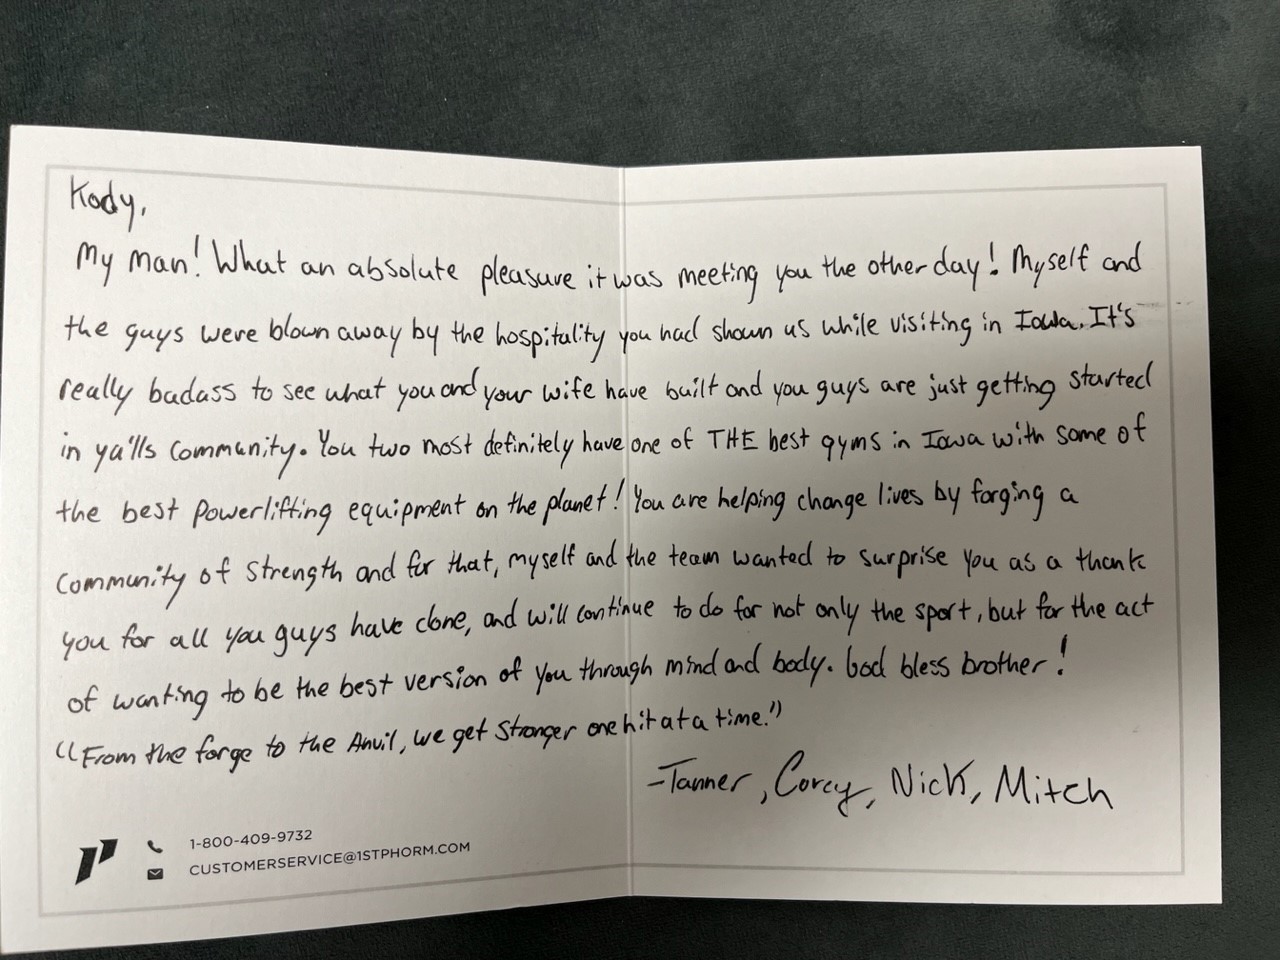 Kody,
My man! What an absolute pleasure it was meeting you the other day! Myself and
the guys were blown away by the hospitality you had shown us while visiting in Iowa. It's
really badass to see what you and your wife have built and you guys are just getting started
in ya'lls community. You two most definitely have one of THE best gyms in Iowa with some of
the best powerlifting equipment on the planet! You are helping change lives by forging a
community of strength and for that, myself and the team wanted to surprise you as a thank
you for all you guys have done, and will continue to do for not only the sport, but for the act
of wanting to be the best version of you through mind and body. God bless brother!
"From the forge to the Anvil, we get stronger one hit at a time."
-Tanner, Corey, Nick, Mitch
1-800-409-9732
CUSTOMERSERVICE@1STPHORM.COM